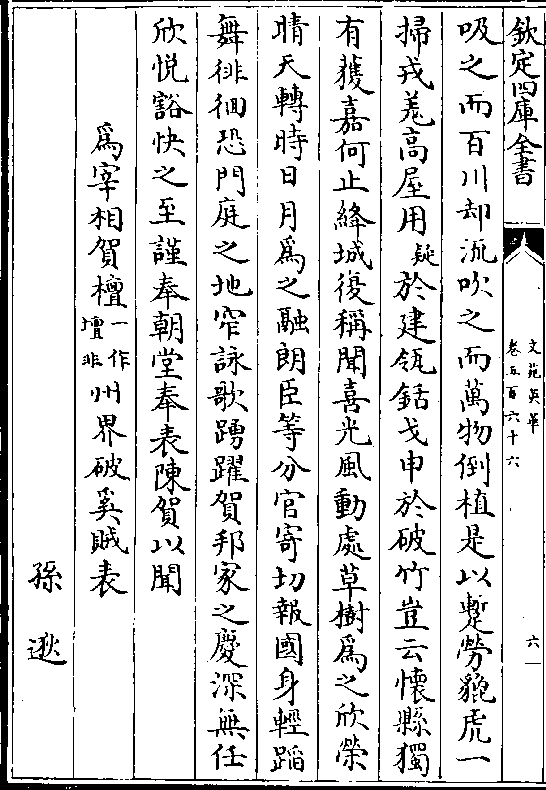 欽定四庫全書
文苑英華
卷五百六十六
六
吸之而百川却流吹之而萬物倒植是以蹔勞貔虎一
掃戎羌高屋用疑於建瓴銛戈申於破竹豈云懷縣獨
有獲嘉何止絳城復稱聞喜光風動處草樹為之欣榮
晴天轉時日月為之融朗臣等分官寄切報國身輕蹈
舞徘徊恐門庭之地窄詠歌踴躍賀邦家之慶深無任
欣悦豁快之至謹奉朝堂奉表陳賀以聞
為宰相賀檀一作壇非州界破奚賊表
孫逖